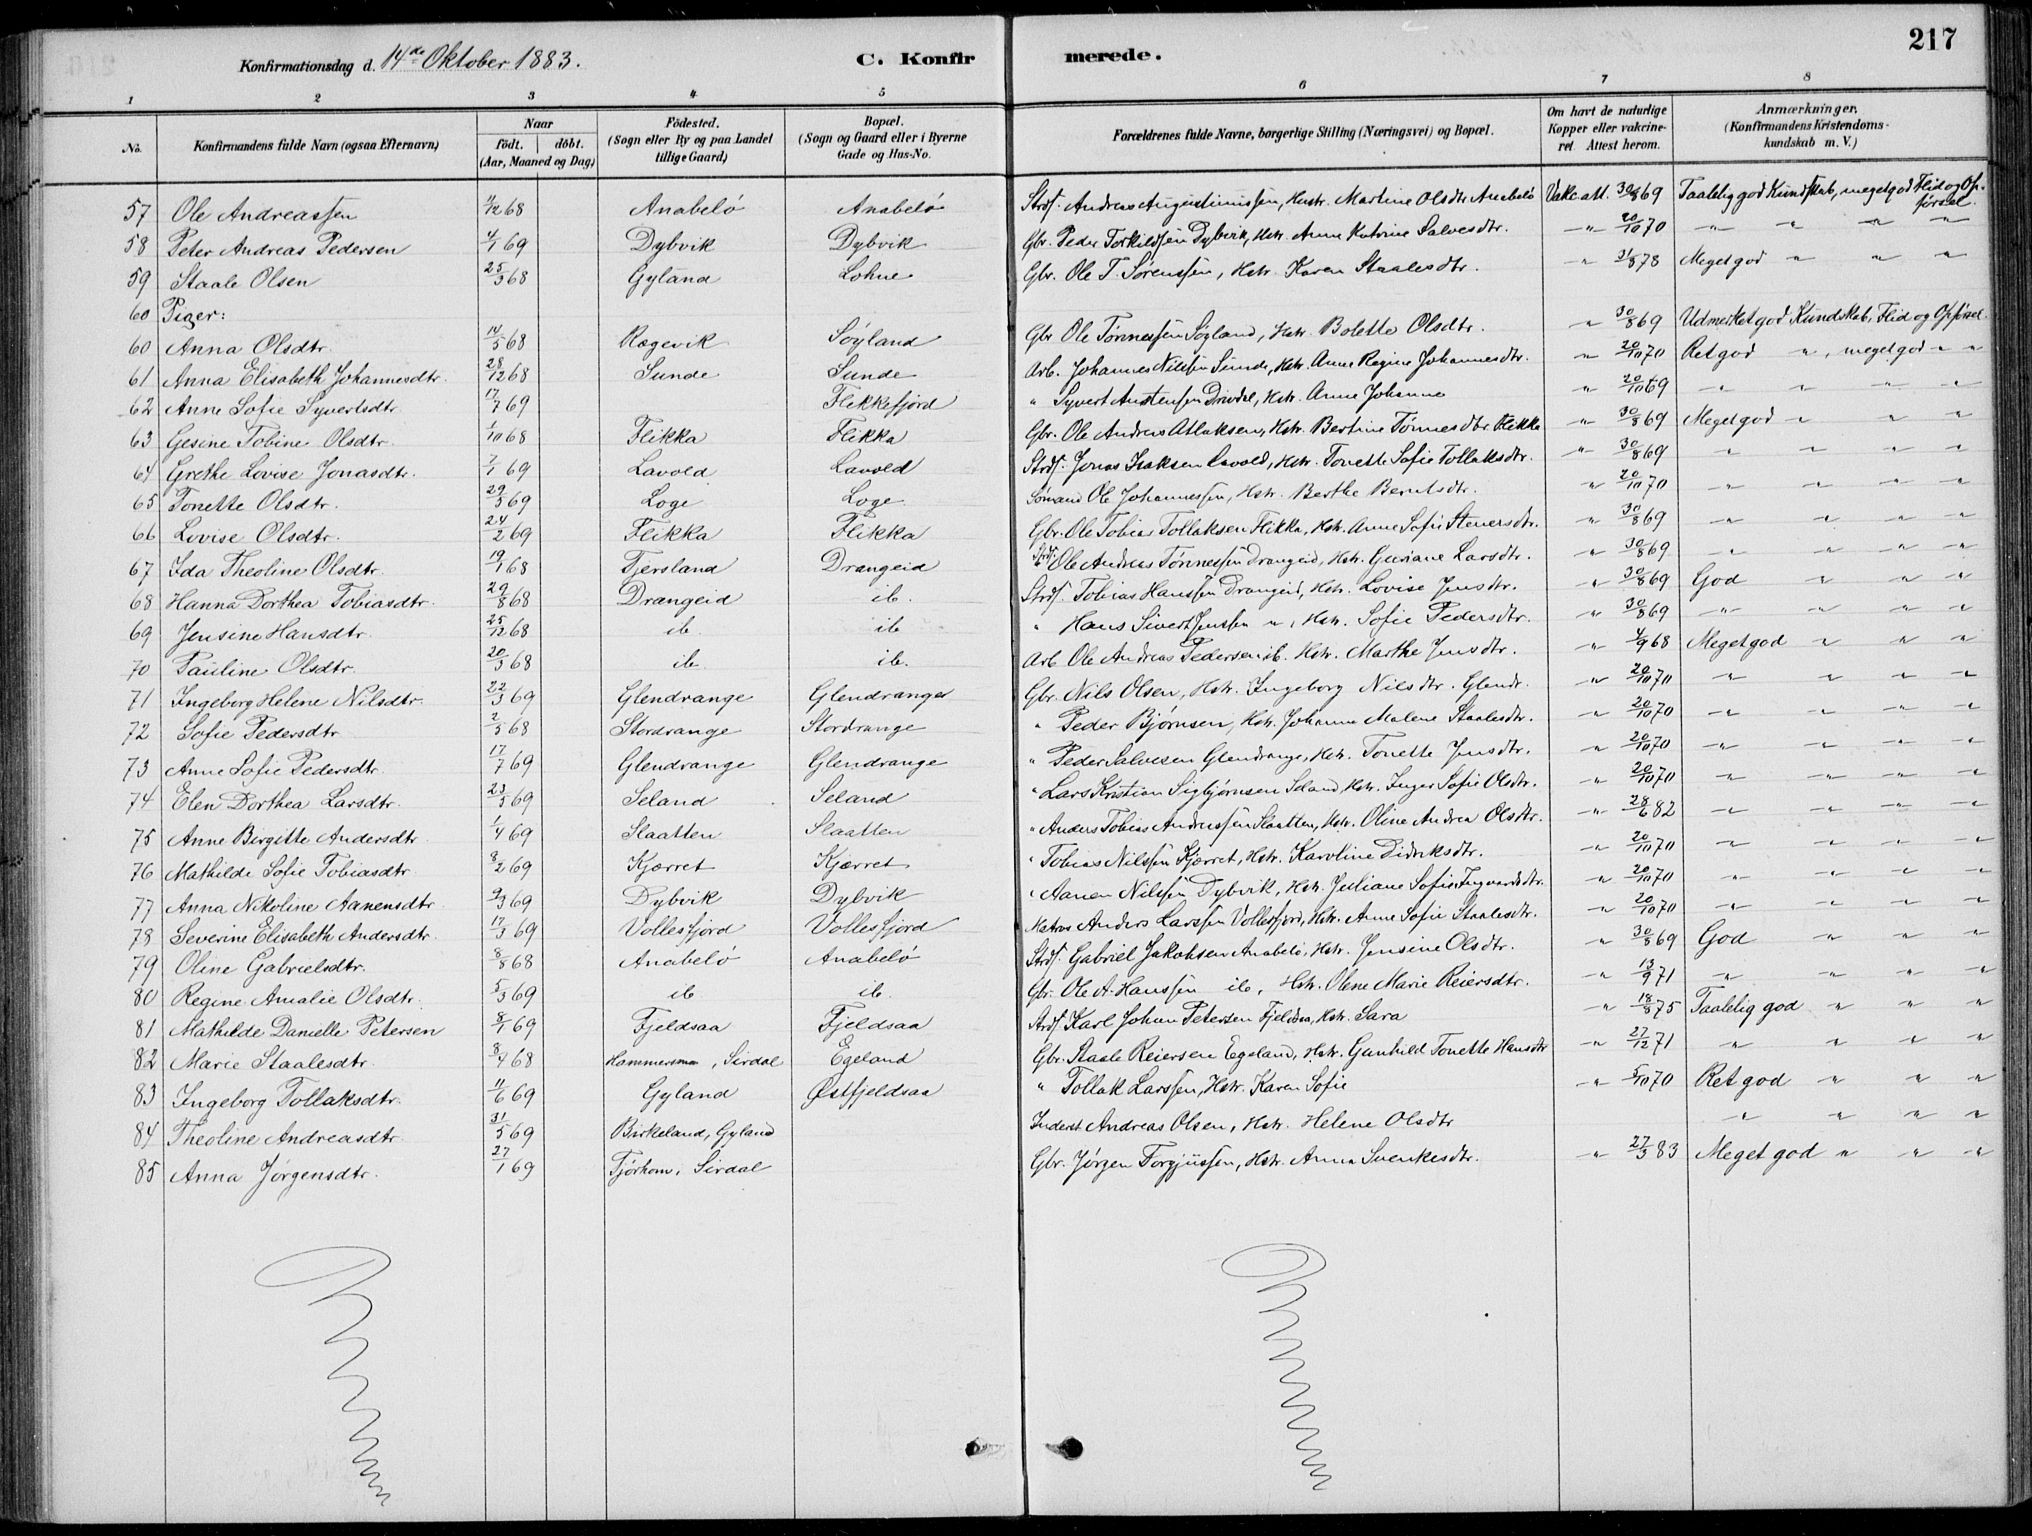 217
Konfirmationsdag d. 14de Oktober 1883. C. Konfirmerede.
1 2 3 4 5 6 7 8
No. Konfirmandens fulde Navn (ogsaa Efternavn) Naar födt. döbt. (Aar, Maaned og Dag) Födested. (Sogn eller By og paa Landet tillige Gaard) Bopæl. (Sogn og Gaard eller i Byerne Gade og Hus-No. Forældrenes fulde Navne, borgerlige Stilling (Næringsvei) og Bopæl. Om havt de naturlige Kopper eller vakcineret. Attest herom. Anmærkninger. (Konfirmandens Kristendomskundskab m. V.)
57 Ole Andreassen 68 Anabelö Anabelö Strds. Andreas Augustinussen, Hustr. Martine Olsdtr Anabelö Vakc. att. 30/8 69 Taalelig god Kundskab, meget god Flid og Opförsel.
58 Peter Andreas Pedersen 4/1 69 Dybvik Dybvik Gbr. Peder Torkildsen Dybvik, Hstr. Anne Katrine Salvesdtr. " 20/10 70 " " " "
59 Staale Olsen 25/3 68 Gyland Lohne Gbr. Ole T. Sörensen, Hstr. Karen Staalesdtr. " 31/8 78 Meget god " " "
60 Piger:
60 Anna Olsdtr. 14/5 68 Rægevik Söyland Gbr Ole Tönnessen Söyland, Hstr. Bolette Olsdtr. " 30/8 69 Udmerket god Kundskab, Flid og Opförsel.
61 Anna Elisabeth Johannesdtr. 28/12 68 Sunde Sunde Arb. Johannes Nilsen Sunde, Hstr. Anne Regine Johannesdtr. " 20/10 70 Ret god " , meget god " "
62 Anne Sofie Syvertsdtr. 17/7 69 Flekkefjord " Syvert Austensen Drivdal, Hstr. Anne Johanne " 20/10 69 " " " "
63 Gesine Tobine Olsdtr. 1/10 68 Flikka Flikka Gbr. Ole Andreas Atlaksen, Hstr. Bertine Tönnesdtr Flikka " 30/8 69 Meget god " " "
64 Grethe Lovise Jonasdtr. 7/1 69 Lavold Lavold Strds. Jonas Isaksen Lavold, Hstr. Tonette Sofie Tollaksdtr. " 30/8 69 " " " "
65 Tonette Olsdtr. 29/5 69 Loge Loge Sömand Ole Johannessen, Hstr. Berthe Berntsdtr. " 20/10 70 " " " "
66 Lovise Olsdtr. 24/2 69 Flikka Flikka Gbr. Ole Tobias Tollaksen Flikka, Hstr. Anne Sofie Stenersdtr. " 30/8 69 " " " "
67 Ida Theoline Olsdtr. 19/1 68 Tjersland Drangeid Strds. Ole Andreas Tönnessen Drangeid, Hstr. Guriane Larsdtr. " 30/8 69 " " " "
68 Hanna Dorthea Tobiasdtr. 29/8 68 Drangeid ib. Strds. Tobias Hanssen Drangeid, Hstr. Lovise Jensdtr. " 30/8 69 God " " "
69 Jensine Hansdtr. 25/12 68 ib. ib. " Hans Sivert Jensen ", Hstr. Sofie Pedersdtr. " 30/8 69 " " " "
70 Pauline Olsdtr. 20/3 68 ib. ib. Arb Ole Andreas Pedersen ib. Hstr. Marthe Jensdtr. " 4/9 68 Meget god " " "
71 Ingeborg Helene Nilsdtr. 22/3 69 Glendrange Glendrange Gbr. Nils Olsen, Hstr. Ingeborg Nilsdtr. Glendr. " 20/10 70 " " " "
72 Sofie Pedersdtr 2/3 68 Stordrange Stordrange " Peder Bjørnsen, Hstr. Johanne Malene Staalesdtr. " 20/10 70 " " " "
73 Anne Sofie Pedersdtr. 17/7 69 Glendrange Glendrange " Peder Salvesen Glendrange, Hstr. Tonette Jensdtr. " 20/10 70 " " " "
74 Elen Dorthea Larsdtr. 23/5 69 Seland Seland " Lars Kristian Sigbjørnsen Seland, Hstr. Inger Sofie Olsdtr. " 20/10 70 " " " "
75 Anne Birgitte Andersdtr 1/4 69 Slaatten Slaatten " Anders Tobias Andreassen Slaatten, Hstr. Oline Andrea Olsdtr. " 28/6 82 " " " "
76 Mathilde Sofie Tobiasdtr 8/2 69 Kjærret Kjærret " Tobias Nilssen Kjærret, Hstr. Karoline Didriksdtr. " 20/10 70 " " " "
77 Anna Nikoline Aanensdtr 9/3 69 Dybvik Dybvik " Aanen Nilssen Dybvik, Hstr. Juliane Sofie Ingvaldsdtr. " 20/10 70 " " " "
78 Severine Elisabeth Andersdtr. 17/3 69 Vollesfjord Vollesfjord Matros Anders Larssen Vollesfjord, Hstr. Anne Sofie Staalesdtr. " 20/10 70 " " " "
79 Oline Gabrielsdtr. 8/8 68 Anabelö Anabelö Strds. Gabriel Jakobsen Anabelö, Hstr. Jensine Olsdtr. " 30/8 69 God " " "
80 Regine Amalie Olsdtr. 5/3 69 ib. ib. Gbr. Ole A. Hanssen ib, Hstr. Olene Marie Reiersdtr. " 13/9 71 " " " "
81 Mathilde Danielle Petersen 8/1 69 Fjeldsaa Fjeldsaa Strds. Karl Johan Petersen Fjeldsaa, Hstr. Sara " 18/8 75 Taalelig god " " "
82 Marie Staalesdtr. 8/4 68 Hammersmon, Sirdal Egeland Gbr. Staale Reiersen Egeland, Hstr. Gunhild Tonette Hansdtr " 27/12 71 " " " "
83 Ingeborg Tollaksdtr. 11/6 69 Gyland Østfjeldsaa " Tollak Larssen, Hstr. Karen Sofie " 5/10 70 Ret god " " "
84 Theoline Andreasdtr. 31/5 69 Birkeland, Gyland Inderst Andreas Olsen, Hstr. Helene Olsdtr " " " "
85 Anna Jørgensdtr. 27/1 69 Tjörhom, Sirdal Gbr. Jørgen Torgjussen, Hstr. Anna Svenkesdtr. " 27/3 83 Meget god " " "